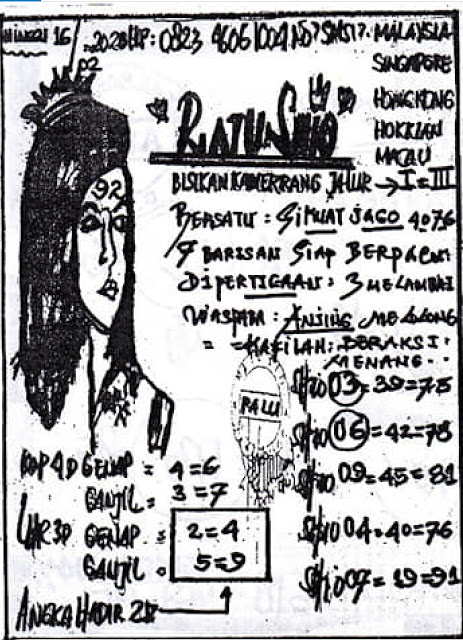 MINGGU 16
2020 HP: 0823 4606 1004 NO? SMS?.
MALAYSIA
SINGAPORE
HONGKONG
HOKKIAN
MACAU
02
92
RATU SHIO
JALUR → I = III
BERSATU : SI KUAT JAGO 4076
7 BARISAN SIAP BERPACU
DIPERTIGAAN : 3 MELAMBAI
WASPADA : ANJING
= KAFILAH: BERAKSI.
MENANG..
SHIO 03 = 39 = 75
PALU
SHIO 06 = 42 = 78
SHIO 09 = 45 = 81
SHIO 04 = 40 = 76
GENAP = 4=6
GANJIL = 3=7
3D GENAP = 2=4
GANJIL = 5=9
ANGKA HADIR